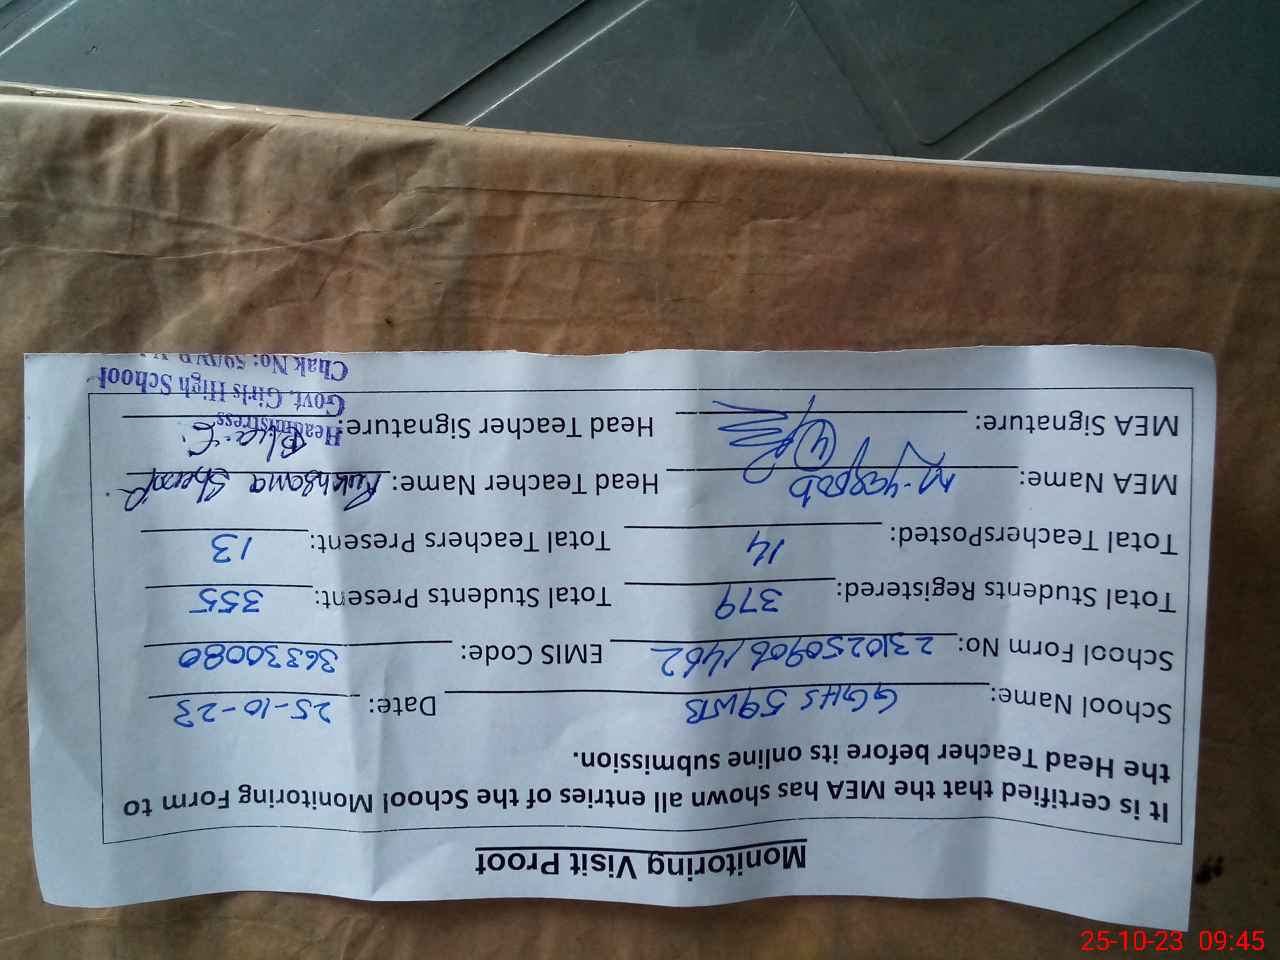 Monitoring Visit Proof
It is certified that the MEA has shown all entries of the School Monitoring Form to
the Head Teacher before its online submission.
School Name: GGHS 59WB Date: 25-10-23
School Form No: EMIS Code: 36330080
Total Students Registered: 379 Total Students Present: 355
Total TeachersPosted: 14 Total Teachers Present: 13
MEA Name: Head Teacher Name: Rukhsana
MEA Signature: Head Teacher Signature:
Headmistress
Govt. Girls High School
Chak No: 59/W.B
25-10-23 09:45